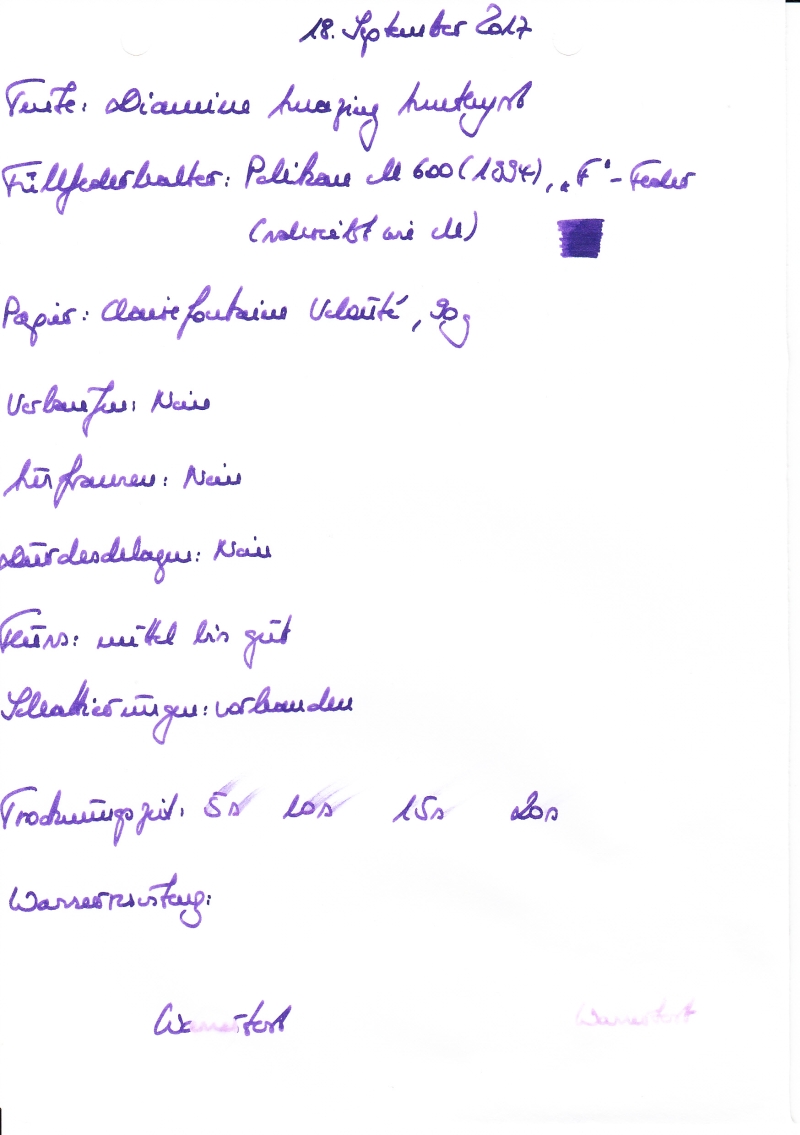 18. September 2017
Tinte: Diamine Amazing Amethyst
Füllfederhalter: Pelikan M 600 (1994), „F“-Feder
(schreibt wie M)
Papier: Clairefontaine Velouté, 90g
Verlaufen: Nein
Ausfransen: Nein
Durchschlagen: Nein
Fluss: mittel bis gut
Schattierungen: vorhanden
Trocknungszeit: 5s 10s 15s 20s
Wasserresistenz:
Wassertest Wassertest